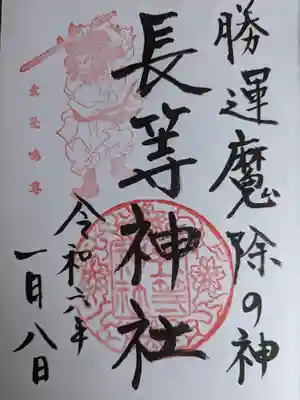 勝運魔除の神
長等神社
素戔嗚尊
令和六年
一月八日